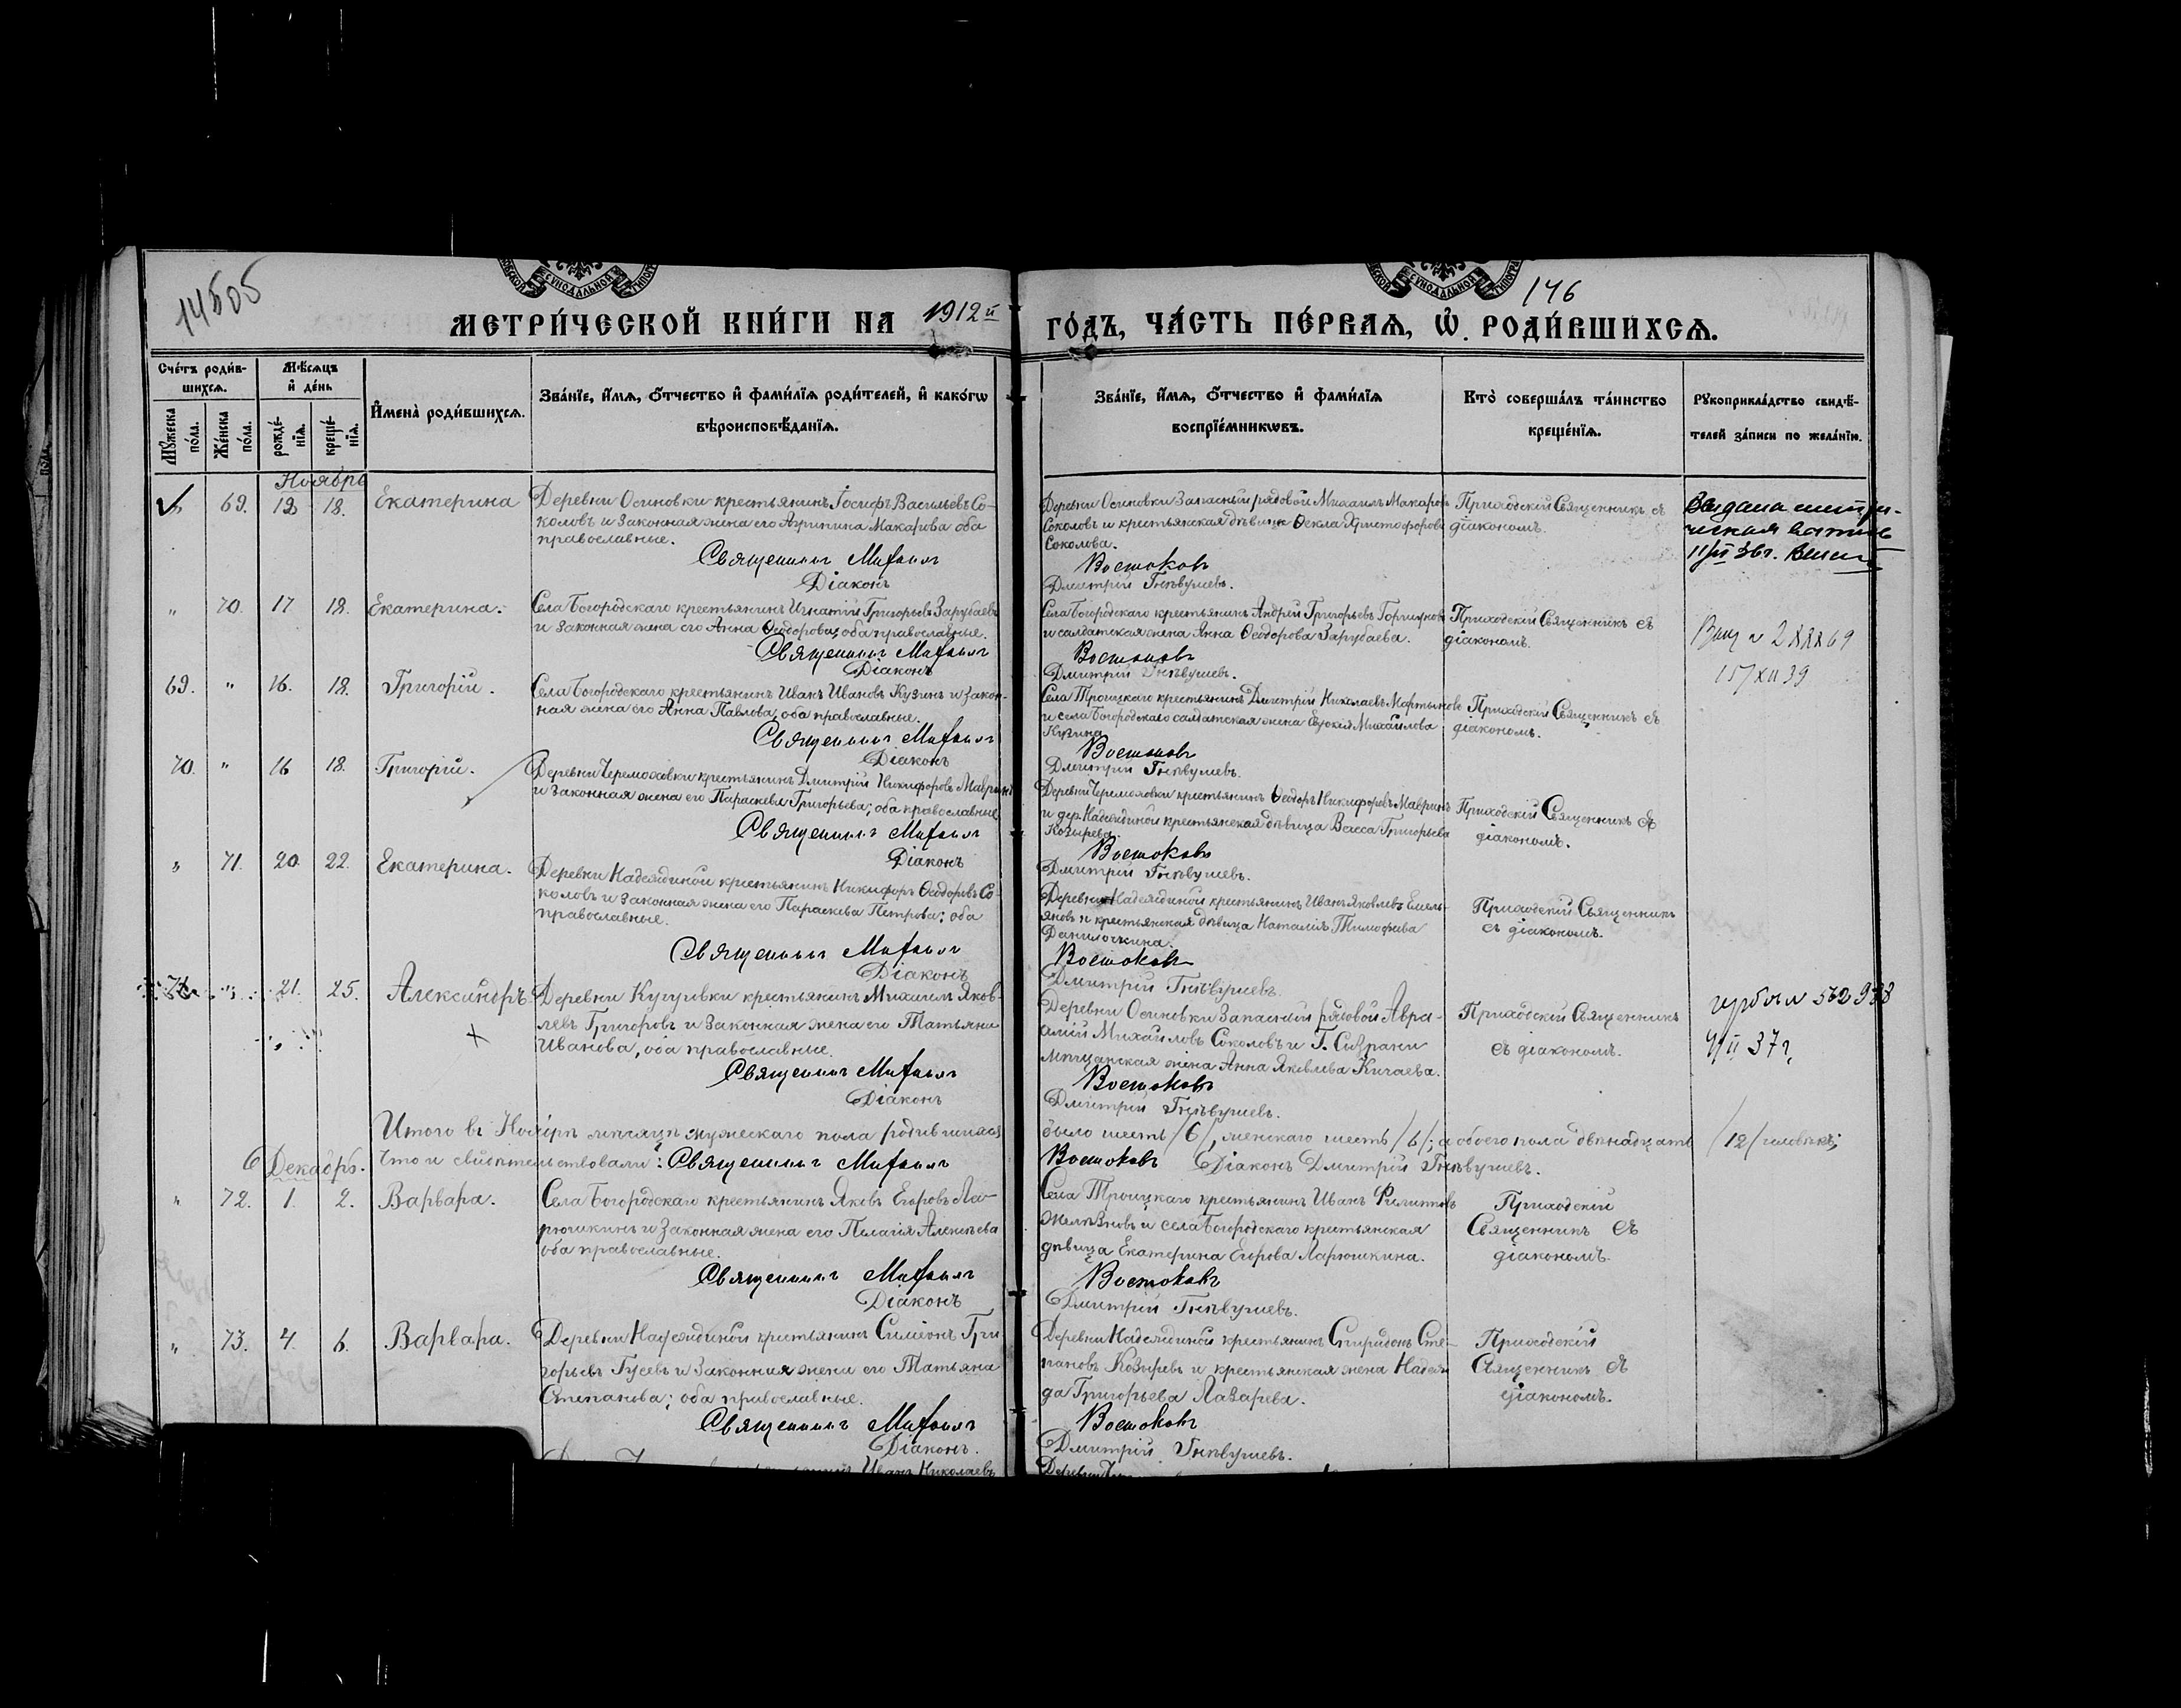 14505
146
МЕТРИ́ЧЕСКОЙ КНИ́ГИ НА 1912й ГО́ДЪ, ЧА́СТЬ ПЕ́РВАЯ, Ѡ РОДИ́ВШИХСЯ.
Сче́тъ роди́в-
шихся.
Мѣсяцъ
и де́нь
Му́жеска
по́ла.
Же́нска
по́ла.
рожде́-
нія.
креще́-
нія.
Имена̀ роди́вшихся.
Зва́ніе, и́мя, о́тчество и фами́лія роди́телей, и како́гѡ
вѣроисповѣ́данія.
Зва́ніе, и́мя, о́тчество и фами́лія
воспріе́мникѡвъ.
Кто̀ соверша́лъ та́инство
креще́нія.
Рукоприкла́дство свидѣ́-
телей за́писи по жела́нію.
Ноябрь
69. 12 18. Екатерина
Деревни Осиновки крестьянинъ Іосифъ Васильевъ Со-
коловъ и законная жена его Агрипина Макарова оба
православные.
Священникъ Михаилъ
Діаконъ
Деревни Осиновки Запасный рядовой Михаилъ Макаровъ
Соколовъ и крестьянская дѣвица Ѳекла Христофорова
Соколова.
Востоковъ
Дмитрій Гнѣвушевъ.
Приходскій Священникъ съ
діакономъ.
Выдана метри-
ческая
" 70. 17 18. Екатерина.
Села Богородскаго крестьянинъ Игнатій Григорьевъ Зарубаевъ
и законная жена его Анна Ѳеодорова, оба православные.
Священникъ Михаилъ
Діаконъ
Села Богородскаго крестьянинъ Андрей Григорьевъ
и солдатская жена Анна Ѳеодорова Зарубаева.
Востоковъ
Дмитрій Гнѣвушевъ.
Приходскій Священникъ съ
діакономъ.
15/XII 39
69. " 16. 18. Григорій.
Села Богородскаго крестьянинъ Иванъ Ивановъ Кузинъ и закон-
ная жена его Анна Павлова, оба православные.
Священникъ Михаилъ
Діаконъ
Села Троицкаго крестьянинъ Дмитрій Николаевъ Мартыновъ
и села Богородскаго солдатская жена Михайлова
Кузина.
Востоковъ
Дмитрій Гнѣвушевъ.
Приходскій Священникъ съ
діакономъ.
70. " 16 18. Григорій.
Деревни Черемоховки крестьянинъ Дмитрій Никифоровъ Мавринъ
и законная жена его Параскева Григорьева; оба православные.
Священникъ Михаилъ
Діаконъ
Деревни Черемоховки крестьянинъ Ѳеодоръ Никифоровъ Мавринъ
и дер. Надеждиной крестьянская дѣвица Васса Григорьева
Козырева.
Востоковъ
Дмитрій Гнѣвушевъ.
Приходскій Священникъ съ
діакономъ.
" 71. 20. 22. Екатерина.
Деревни Надеждиной крестьянинъ Никифоръ Ѳеодоровъ Со-
коловъ и законная жена его Параскева Петрова; оба
православные.
Священникъ Михаилъ
Діаконъ
Деревни Надеждиной крестьянинъ Иванъ Яковлевъ Емель-
яновъ и крестьянская дѣвица Наталія Тимофеева
Данилочкина.
Востоковъ
Дмитрій Гнѣвушевъ.
Приходскій Священникъ
съ діакономъ.
71. " 21. 25. Александръ.
Деревни Кугуровки крестьянинъ Михаилъ Яков-
левъ Григоровъ и законная жена его Татьяна
Иванова, оба православные.
Священникъ Михаилъ
Діаконъ
Деревни Осиновки Запасный рядовой Авра-
амій Михайловъ Соколовъ и Г. Сызрани
мѣщанская жена Анна Яковлева Кичаева.
Востоковъ
Дмитрій Гнѣвушевъ.
Приходскій Священникъ
съ діакономъ.
37 г.
Итого въ Ноябрѣ мѣсяцѣ мужескаго пола родившихся было шесть /6/, женскаго шесть /6/; а обоего пола двѣнадцать /12/ человѣкъ;
Что и свидѣтельствовали: Священникъ Михаилъ Востоковъ Діаконъ Дмитрій Гнѣвушевъ.
Декабрь.
" 72. 1. 2. Варвара.
Села Богородскаго крестьянинъ Яковъ Егоровъ Ла-
рюшкинъ и законная жена его Пелагія Алексѣева
оба православные.
Священникъ Михаилъ
Діаконъ
Села Троицкаго крестьянинъ Иванъ Филиповъ
Желѣзновъ и села Богородскаго крестьянская
дѣвица Екатерина Егорова Ларюшкина.
Востоковъ
Дмитрій Гнѣвушевъ.
Приходскій
Священникъ съ
діакономъ.
" 73. 4. 6. Варвара.
Деревни Надеждиной крестьянинъ Симеонъ Гри-
горьевъ Гусевъ и законная жена его Татьяна
Степанова; оба православные.
Священникъ Михаилъ
Діаконъ.
Деревни Надеждиной крестьянинъ Спиридонъ Сте-
пановъ Козыревъ и крестьянская жена Надеж-
да Григорьева Лазарева.
Востоковъ
Дмитрій Гнѣвушевъ.
Приходскій
Священникъ съ
діакономъ.
Иванъ Николаевъ
Деревни